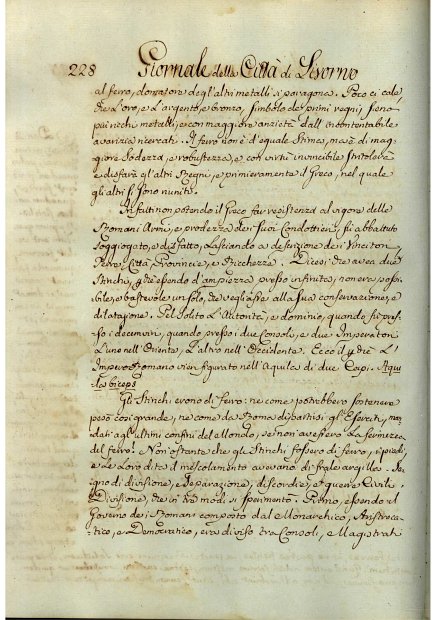 228 Giornale della Città di Livorno
al ferro, domatore degl'altri metalli si paragona. Poco ci cale
che l'oro, e l'argento, e bronzo, simbolo de primi regni, sieno
più ricchi metalli, e con maggiore anzietà dall'incontentabile
avarizia ricercati. Il ferro non è d'eguale stima, ma è di mag-
giore sodezza, e robustezza, e con virtù invincibile stritolerà
e disfarà gl'altri Regni, e primieramente il Greco, nel quale
gli altri si sono riuniti.
Infatti non potendo il Greco far resistenza al vigore delle
Romani Armi, e prodezza de i suoi Condottieri fù abbattuto
soggiogato, e disfatto, lasciando a discrizione de i Vincitori
Città, Provincie, e Ricchezze. Dicesi che avea due
Stinchi, che essendo d'ampiezza presso infinita, non era possi-
bile, e bastevole un solo, che vegliasse alla sua conservazione, e
dilatazione. Fù solito l'Autorità, e dominio, quando fù pres-
so i decemviri, quando presso i due Consoli, e due Imperatori
L'uno nell'Oriente, l'altro nell'Occidente. Ecco il perche L'
Impero Romano vien figurato nell'Aquila di due Capi. Aqui
la biceps
Gli Stinchi erano di ferro: ne come potrebbero sostenere
peso così grande, ne come da Roma dipartirsi gl'Eserciti, man
dati agl'ultimi confini del Mondo, se non avessero la fermezza
del ferro? Non ostante che gli Stinchi fossero di ferro, i piedi,
e le loro dita il mescolamento avevano di fragile argilla. Se-
gno di divisione, e separazione, discordie, e guerre Civili.
Divisione, che in tre modi si sperimentò. Primo, essendo il
Governo de i Romani composto dal Monarchico, Aristocra-
tico, e Democratico, era diviso tra Consoli, e Magistrati